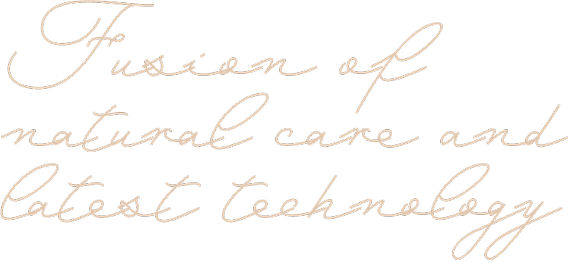 Fusion of
natural care and
latest technology